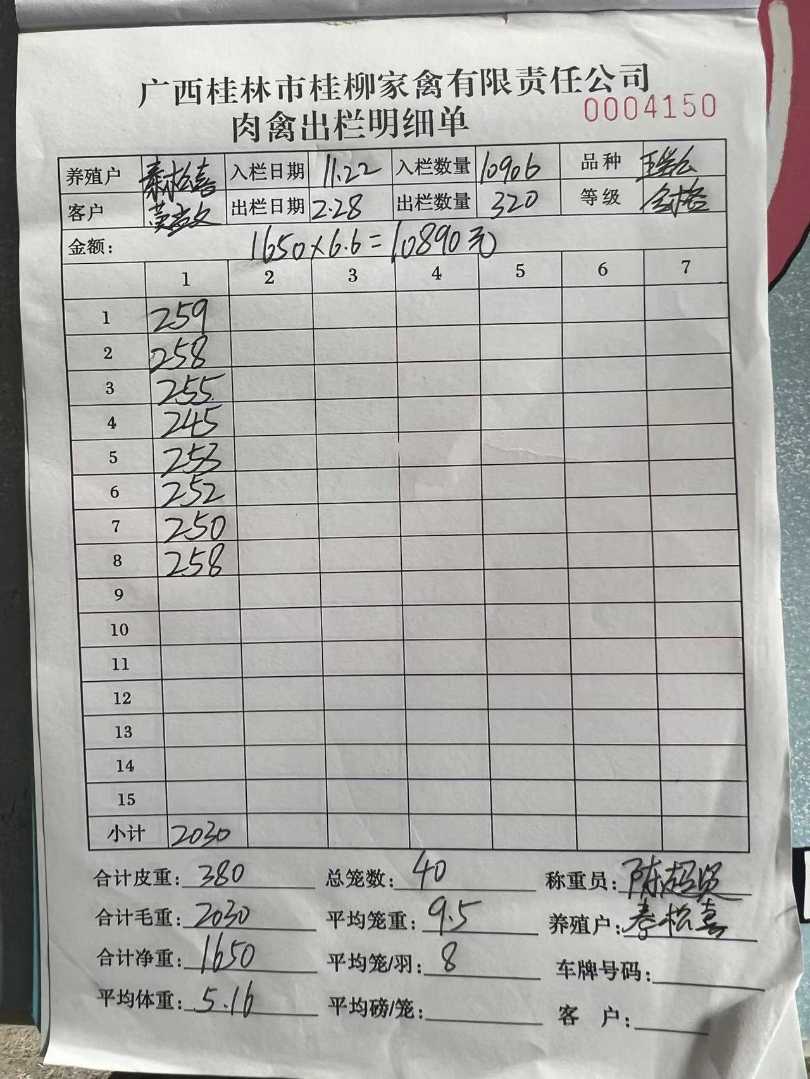 广西桂林市桂柳家禽有限责任公司
肉禽出栏明细单 0004150
养殖户 秦松喜 入栏日期 11.22 入栏数量 10906 品种
客户 出栏日期 2.28 出栏数量 320 等级 合格
金额: 1650×6.6=10890元
1 2 3 4 5 6 7
1 259
2 258
3 255
4 245
5 253
6 252
7 250
8 258
9
10
11
12
13
14
15
小计 2030
合计皮重: 380 总笼数: 40 称重员:
合计毛重: 2030 平均笼重: 9.5 养殖户: 秦松喜
合计净重: 1650 平均笼/羽: 8 车牌号码:
平均体重: 5.16 平均磅/笼: 客 户: